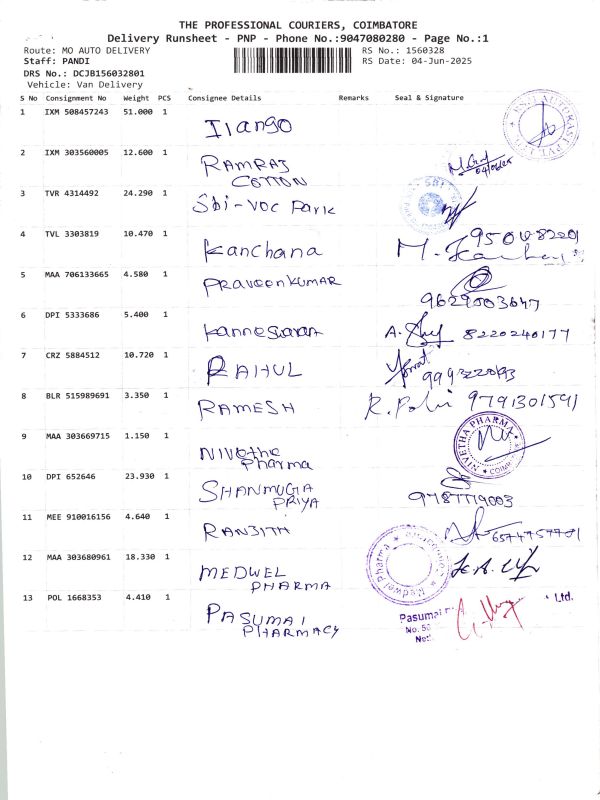 THE PROFESSIONAL COURIERS, COIMBATORE
Delivery Runsheet - PNP - Phone No.:9047080280 - Page No.:1
Route: MO AUTO DELIVERY RS No.: 1560328
Staff: PANDI RS Date: 04-Jun-2025
DRS No.: DCJB156032801
Vehicle: Van Delivery
S No Consignment No Weight PCS Consignee Details Remarks Seal & Signature
1 IXM 508457243 51.000 1 Ilango
2 IXM 303560005 12.600 1 RAMRAJ
COTTON 04/06/25
3 TVR 4314492 24.290 1 Sbi-VOC Park
SBI
4 TVL 3303819 10.470 1 Kanchana M.
5 MAA 706133665 4.580 1 PRAVEENKUMAR
9629003647
6 DPI 5333686 5.400 1 Kanneswaran A. 8220240177
7 CRZ 5884512 10.720 1 RAHUL
8 BLR 515989691 3.350 1 RAMESH R. 9791301591
9 MAA 303669715 1.150 1 NIVetha
Pharma
NIVETHA PHARMA
10 DPI 652646 23.930 1 SHANMUGA
PRIYA
11 MEE 910016156 4.640 1 RANJITH
12 MAA 303680961 18.330 1 MEDWEL
PHARMA
Medwel Pharma
13 POL 1668353 4.410 1 PASUMAI
PHARMACY
Pasumai Ltd.
No.